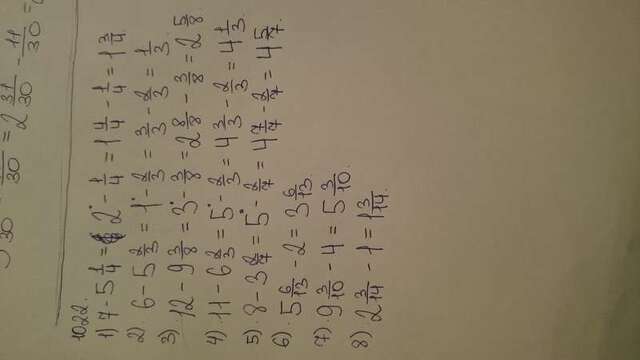 30 30 = 2 31/30 - 11/30 =
1022.
1) 7 - 5 1/4 = 2 - 1/4 = 1 4/4 - 1/4 = 1 3/4
2) 6 - 5 2/3 = 1 - 2/3 = 3/3 - 2/3 = 1/3.
3) 12 - 9 3/8 = 3 - 3/8 = 2 8/8 - 3/8 = 2 5/8.
4) 11 - 6 2/3 = 5 - 2/3 = 4 3/3 - 2/3 = 4 1/3.
5) 8 - 3 2/7 = 5 - 2/7 = 4 7/7 - 2/7 = 4 5/7.
6) 5 6/13 - 2 = 3 6/13.
7) 9 3/10 - 4 = 5 3/10
8) 2 3/14 - 1 = 1 3/14.